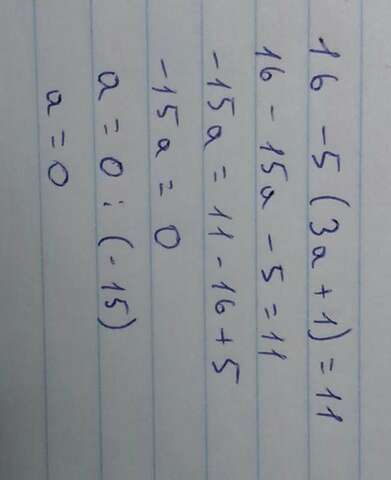 16 - 5 (3a + 1) = 11
16 - 15a - 5 = 11
-15a = 11 - 16 + 5
-15a = 0
a = 0 : (-15)
a = 0